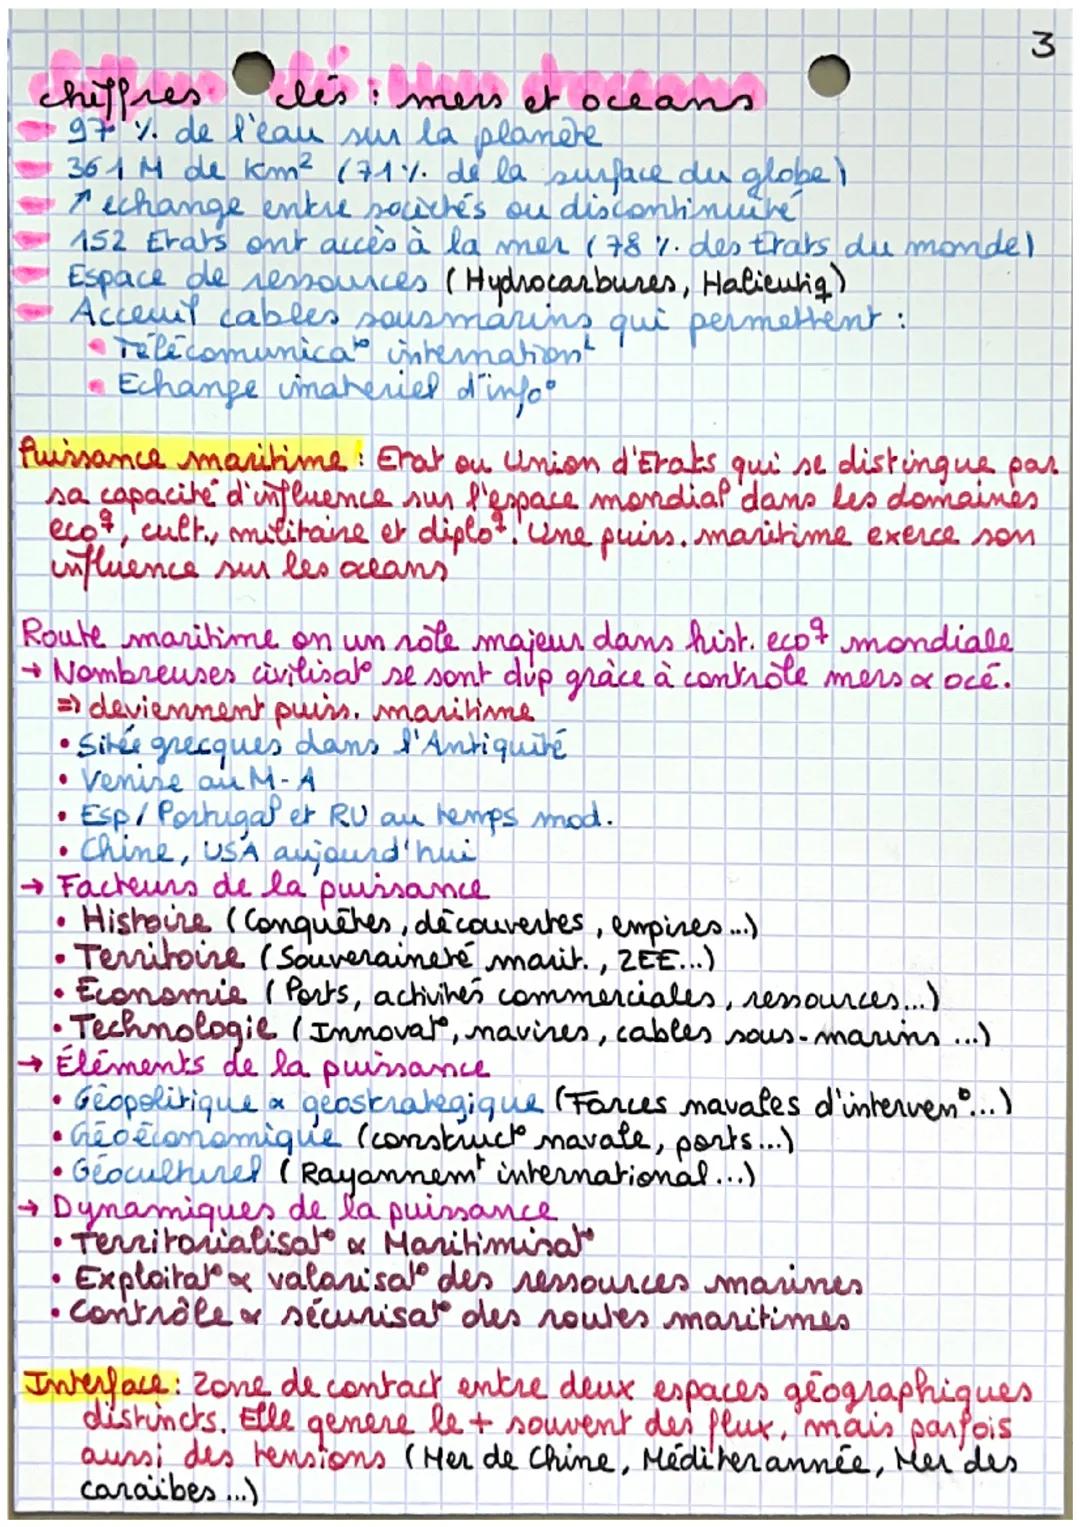 3
chiffres clés : mers et oceans
97 % de l'eau sur la planète
361 M de Km² (71% de la surface du globe)
↗ echange entre sociétés ou discontinuité
152 Etats ont accès à la mer (78 % des Etats du monde)
Espace de ressources (Hydrocarbures, Halieutiq)
Acceuil cables sousmarins qui permettent :
• Télécomunicat° internation^t
• Echange imateriel d'info°
Puissance maritime : Etat ou Union d'Etats qui se distingue par
sa capacité d'influence sur l'espace mondial dans les domaines
eco^q, cult., militaire et diplo^q. Une puiss. maritime exerce son
influence sur les oceans
Route maritime on un rôle majeur dans hist. eco^q mondiale
→ Nombreuses civilisat° se sont dvp grâce à contrôle mers & océ.
⇒ deviennent puiss. maritime
• Sitée grecques dans l'Antiquité
• Venise au M-A
• Esp/Portugal et RU au temps mod.
• Chine, USA aujourd'hui
→ Facteurs de la puissance
• Histoire (Conquêtes, découvertes, empires...)
• Territoire (Souveraineté marit., ZEE...)
• Economie (Ports, activités commerciales, ressources...)
• Technologie (Innovat°, navires, cables sous-marins ...)
→ Éléments de la puissance
• Géopolitique & géostrategique (Forces navales d'interven°...)
• Géoéconomique (construct° navale, ports...)
• Géoculturel (Rayonnem^t international...)
→ Dynamiques de la puissance
• Territorialisat° & Maritimisat°
• Exploitat° & valorisat° des ressources marines
• Contrôle & sécurisat° des routes maritimes
Interface : Zone de contact entre deux espaces géographiques
distincts. Elle genere le + souvent des flux, mais parfois
aussi des tensions (Mer de Chine, Méditerannée, Mer des
caraïbes ...)